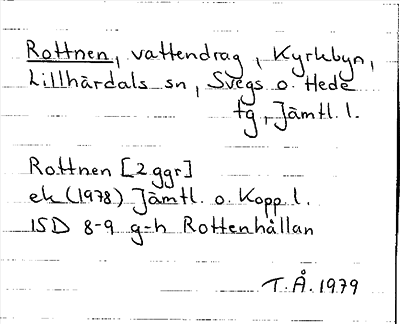 Rottnen, vattendrag, Kyrkbyn,
Lillhärdals sn, Svegs o. Hede
tg, Jämtl. l.
Rottnen [2 ggr]
ek (1978) Jämtl. o. Kopp l.
ISD 8-9 g-h Rottenhållan
T.Å. 1979